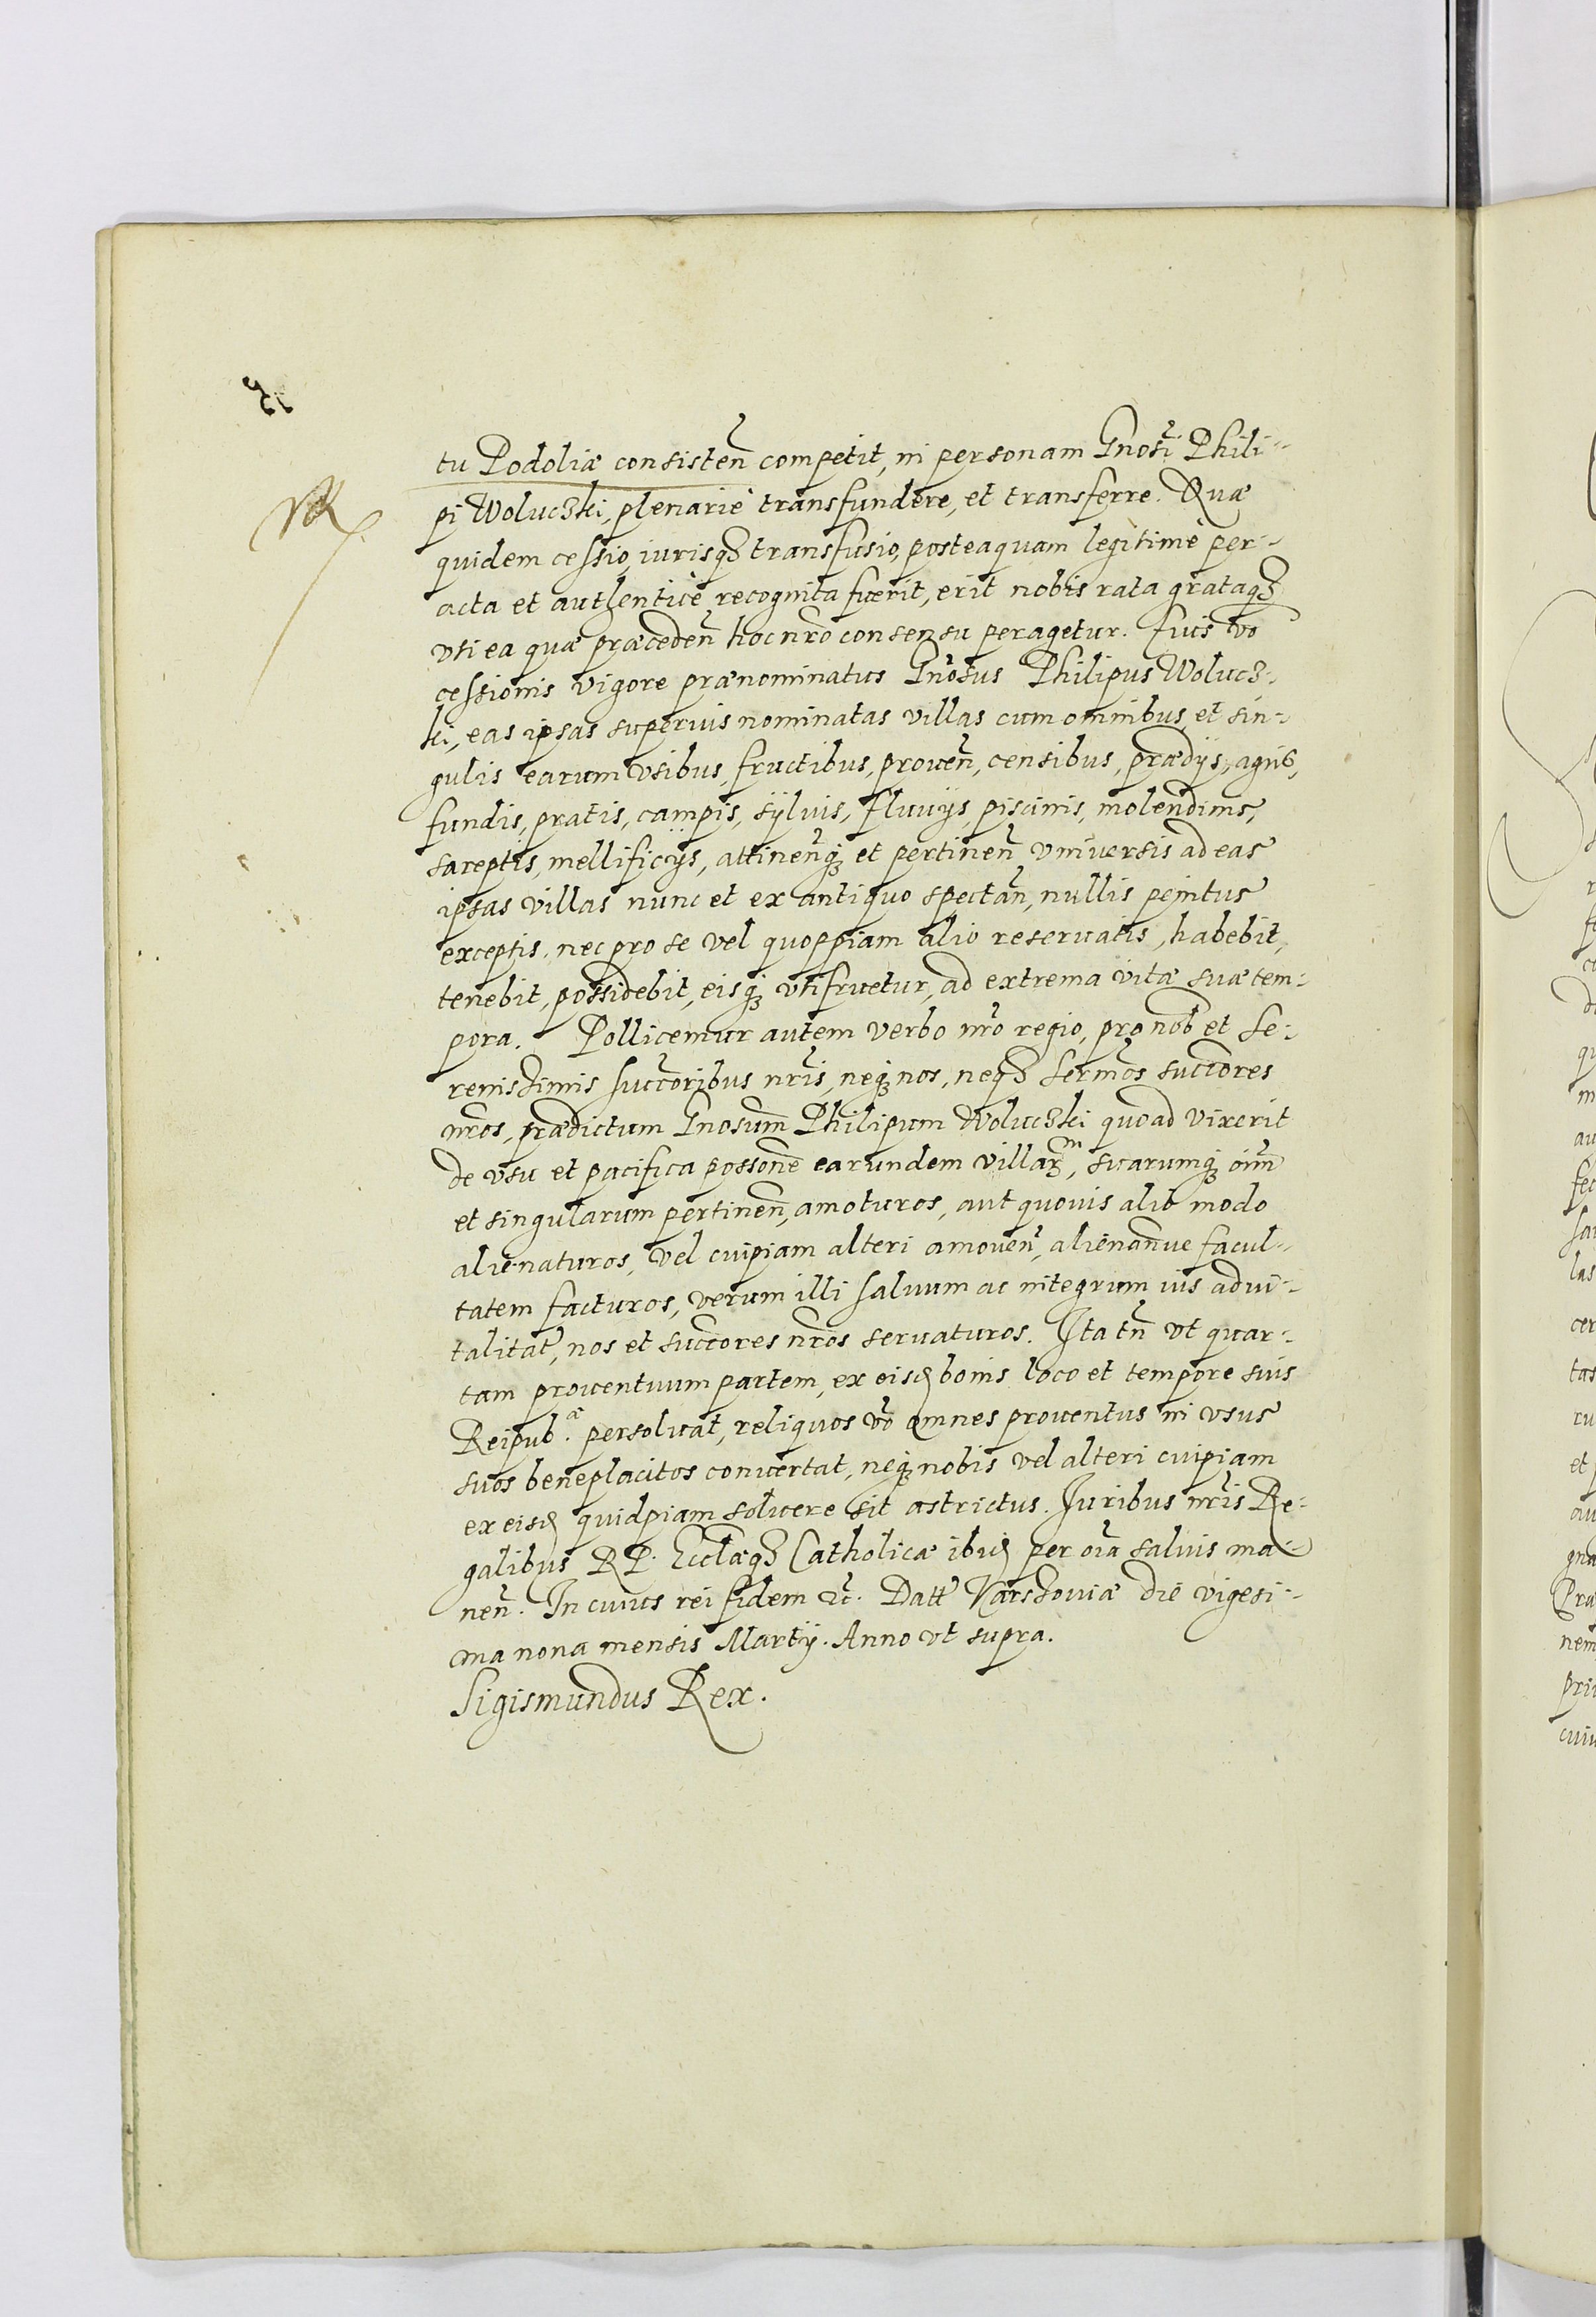 tu Podoliæ consisteñ competit, in personam Gnosi Phili-
pi Woluczki, plenariè transfundere, et transferre. Quæ
quidem cessio, iurisq3 transfusio, posteaquam legitimè per-
acta et authenticè recognita fuerit, erit nobis rata grataq3
vti ea quæ præcedeñ hoc nro consensu peragetur. Cuis vo
cessionis vigore prænominatus Gnosus Philipus Wolucz-
ki, eas ipsas superius nominatas villas cum omnibus et sin-
gulis earum vsibus, fructibus, proueñ, censibus, prædijs, agris,
fundis, pratis, campis, sÿluis, fluuijs, piscinis, molendinis,
sareptis, mellificijs, attineñq3 et pertineñ vniuersis ad eas
ipsas villas nunc et ex antiquo spectañ, nullis penitus
exceptis, nec pro se vel quoppiam alio reseruatis, habebit,
tenebit, possidebit, eisq3 vtifruetur, ad extrema vitæ suæ tem-
pora. Pollicemur autem verbo nro regio, pro nob et Se-
renissimis succoribus nris, neq3 nos, neq3 sermos succores
nros, prædictum Gnosum Philipum Woluczki quoad vixerit
de vsu et pacifica possone earundem villarm, suarumq3 oim
et singularum pertineñ, amoturos, aut quouis alio modo
alienaturos, vel cuipiam alteri amoueñ, alienañue facul-
tatem facturos, verum illi saluum ac integrum ius adui-
talitat, nos et succores nros seruaturos. Ita tñ vt quar-
tam prouentuum partem, ex eisd bonis loco et tempore suis
Reipub.æ persoluat, reliquos vo omnes prouentus in vsus
suos beneplacitos conuertat, neq3 nobis vel alteri cuipiam
ex eisd quidpiam soluere sit astrictus. Iuribus nris Re-
galibus R P. Ecclæq3 Catholicæ ibid per oia saluis ma-
neñ. In cuius rei fidem etc. Datt Varssouiæ die vigesi-
ma nona mensis Martij. Anno vt supra.
Sigismundus Rex.